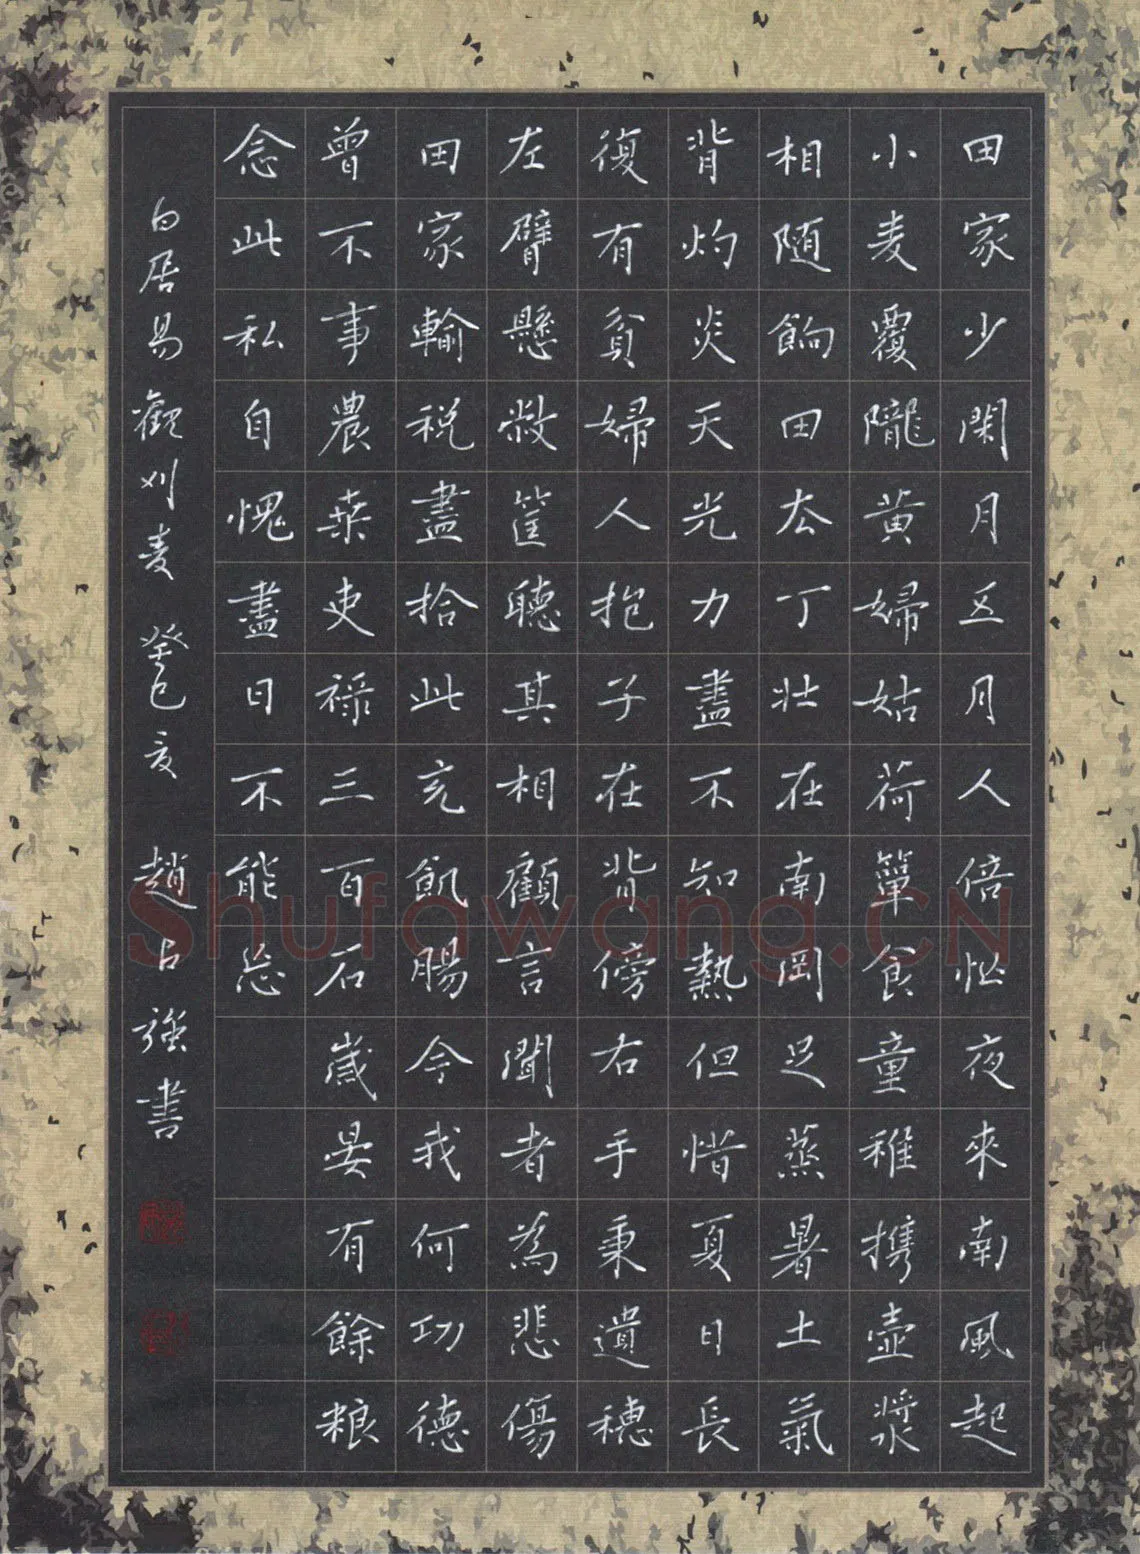 田家少閑月五月人倍忙夜來南風起
小麦覆隴黄婦姑荷簞食童稚携壺漿
相随餉田去丁壯在南岡足蒸暑土氣
背灼炎天光力盡不知熱但惜夏日長
復有貧婦人抱子在背傍右手秉遺穗
左臂懸敝筐聽其相顧言聞者為悲傷
田家輸税盡拾此充飢腸今我何功德
曾不事農桒吏禄三百石歲晏有餘粮
念此私自愧盡日不能忘
白居易觀刈麦 癸巳夏 趙占強書
Shufawang.CN